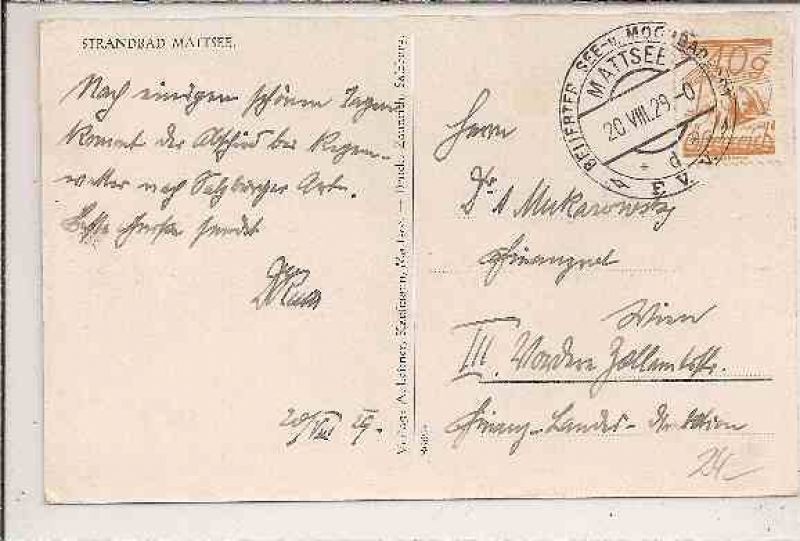 STRANDBAD MATTSEE.
Nach einigen schönen Tagen
kommt der Abschied bei Regen-
wetter nach Salzburger Art.
Beste Grüße sendet
20/VIII 29.
Verlag: A. Leitner, Kaufmann, Mattsee — Druck: Zaunrith, Salzburg.
BELIEBTER SEE- u. MOORBADEORT
MATTSEE
20.VIII.29.-0
10g
Herrn
Dr A Mukarowsky
Finanzrat
Wien
III. Vordere Zollamtsstr.
Finanz-Landes-Direktion